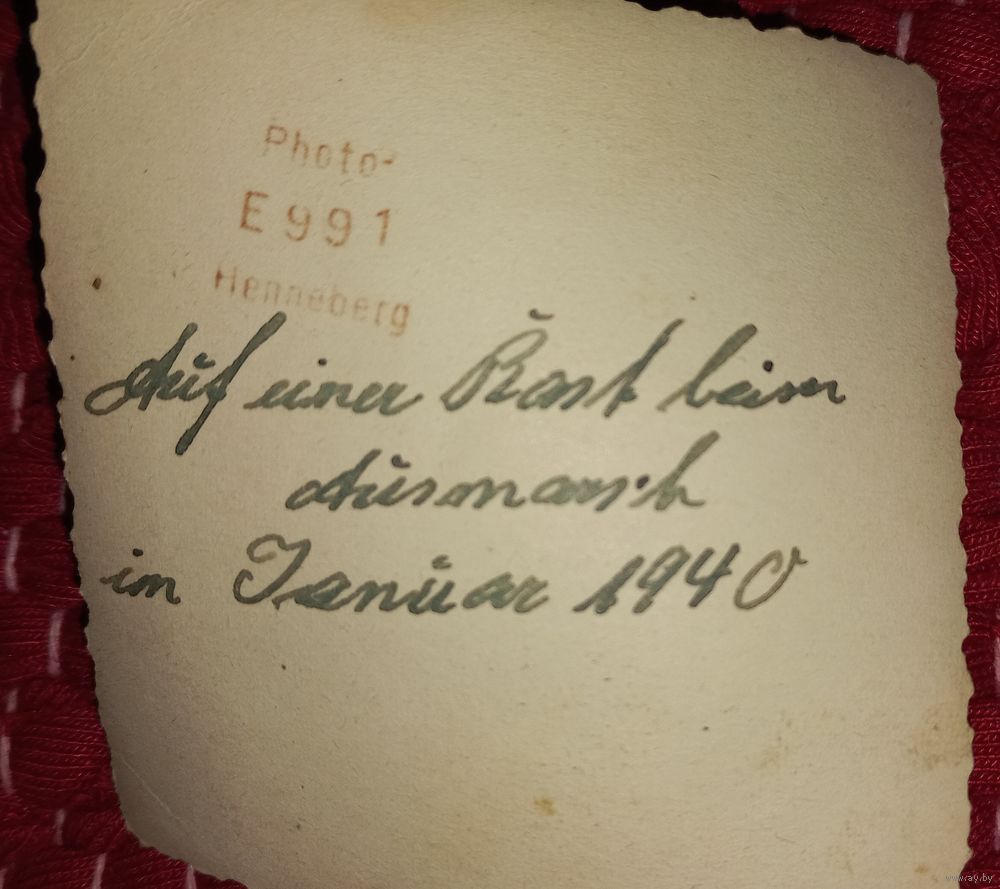 Photo-
E991
Henneberg
Auf einer Rast beim
Ausmarsch
im Januar 1940
www.ay.by